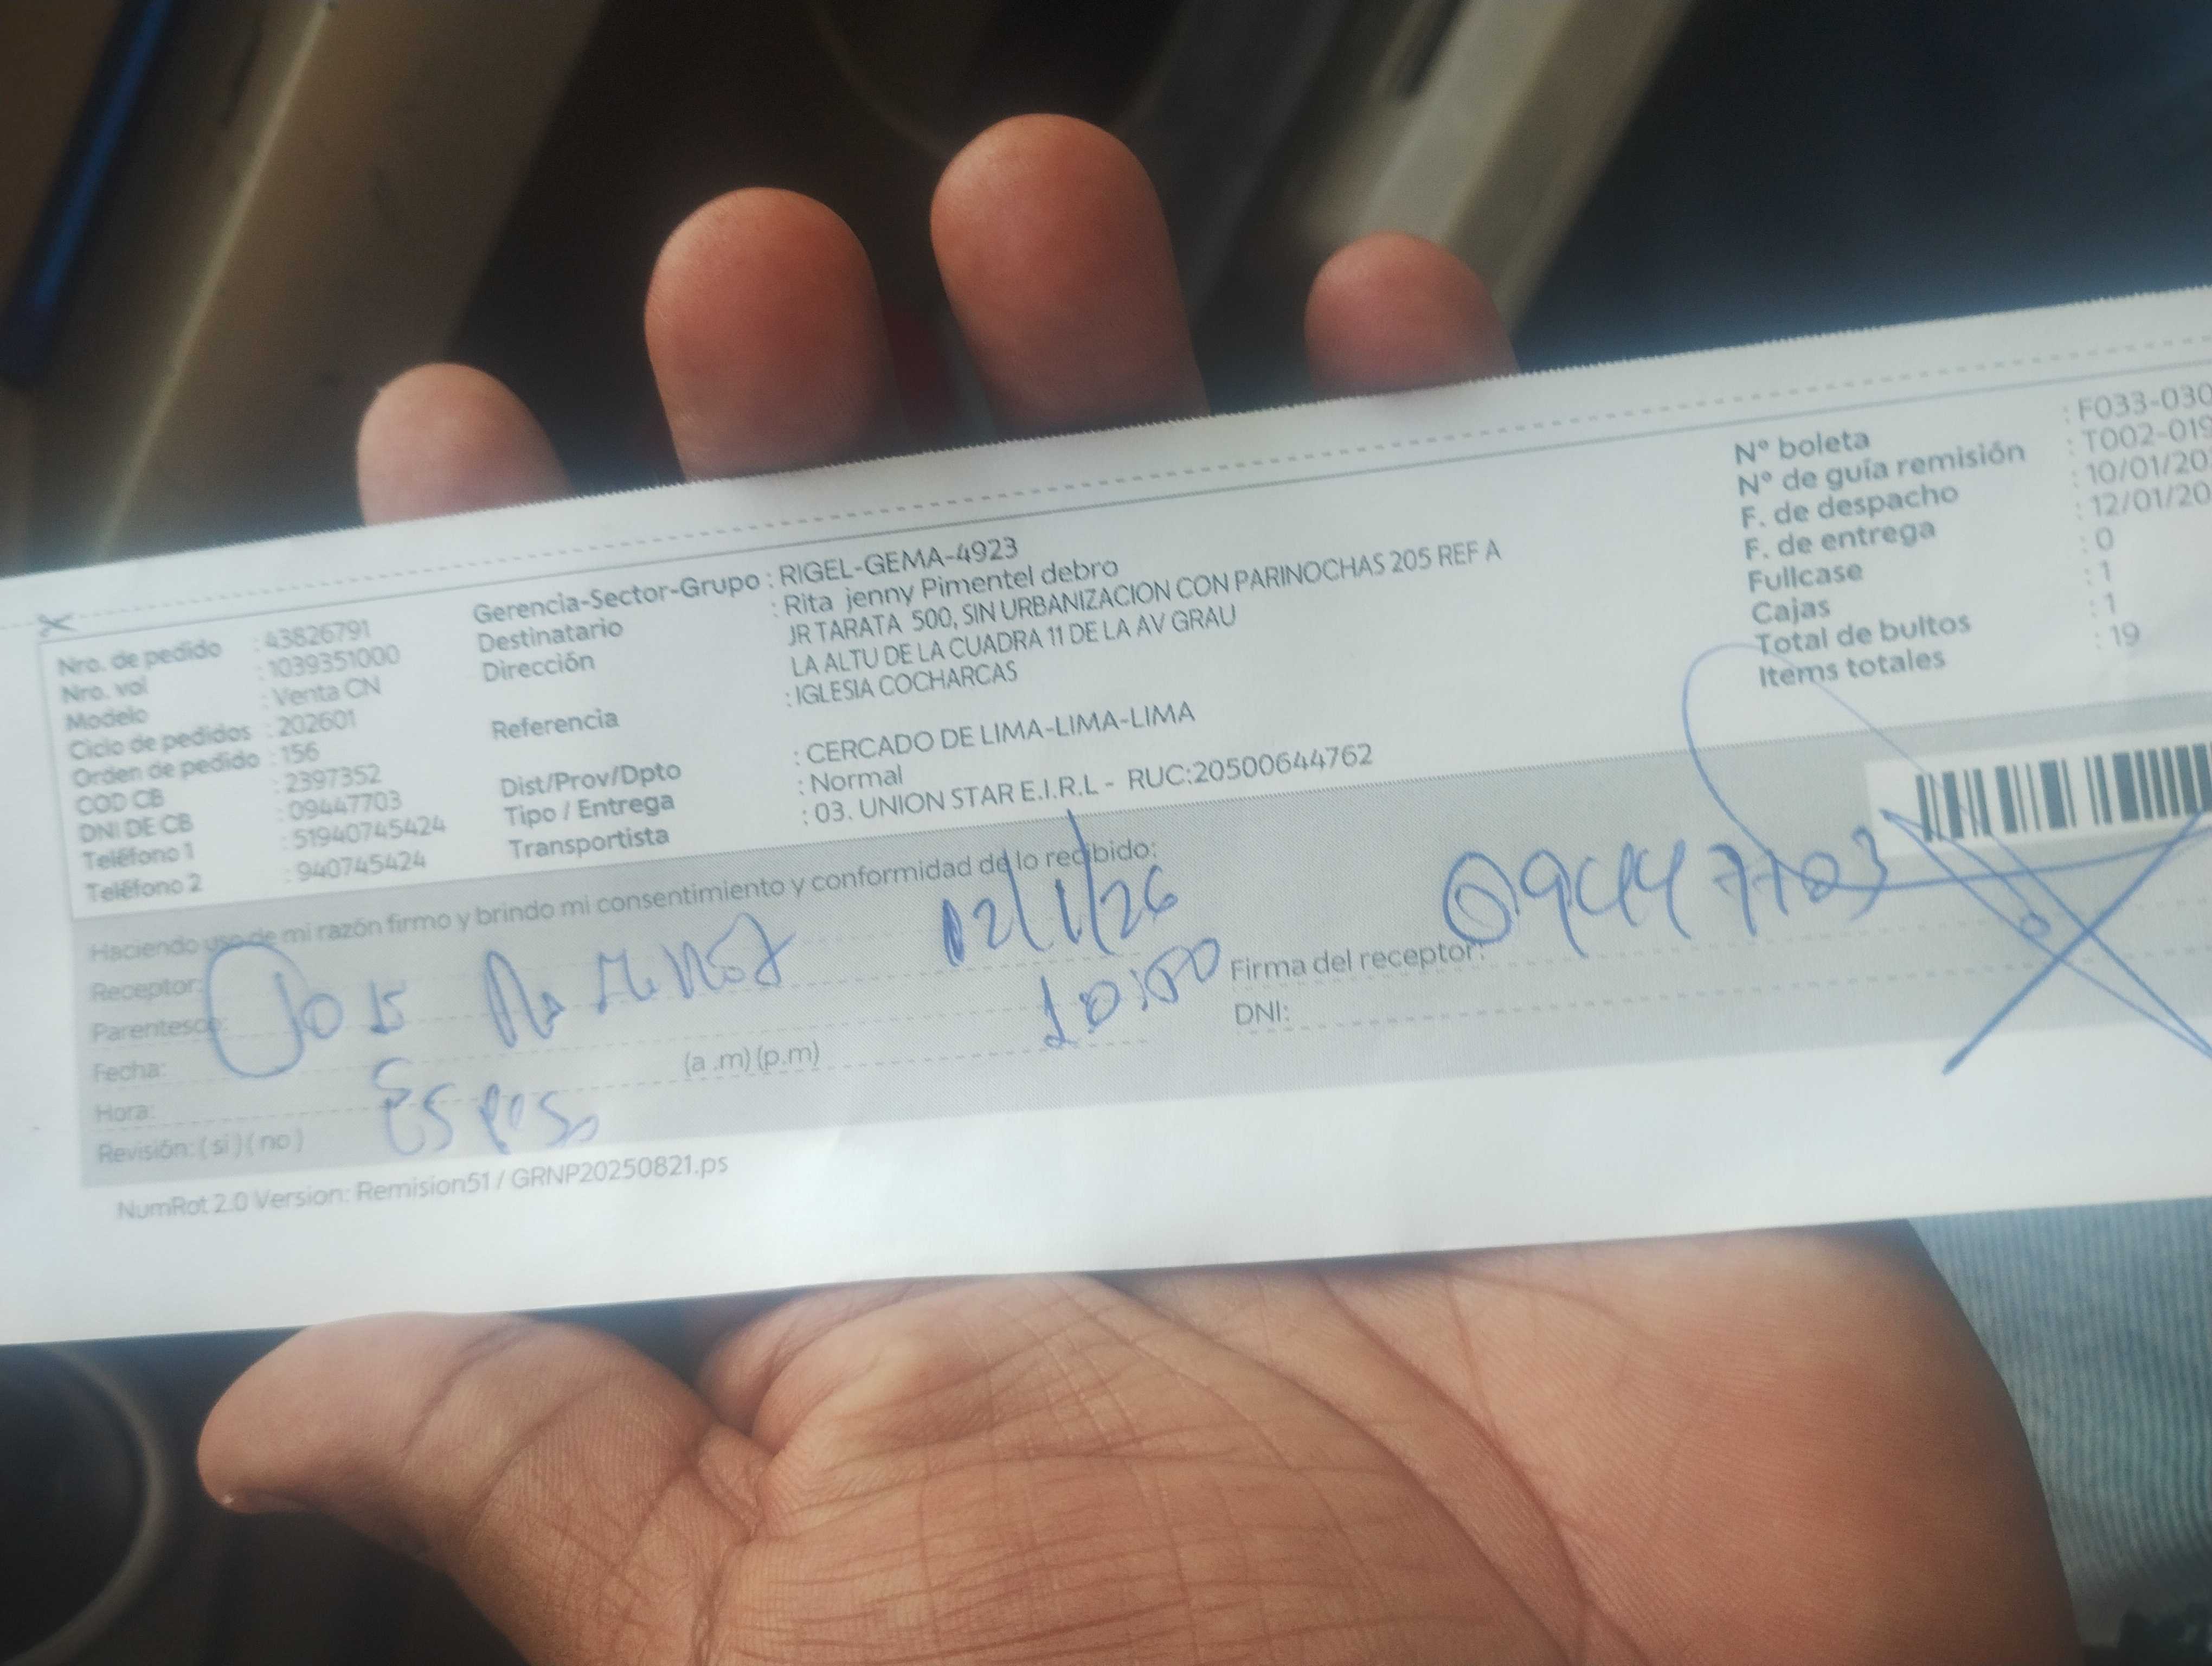 Nro. de pedido : 43826791
Nro. vol : 1039351000
Modelo : Venta CN
Ciclo de pedidos : 202601
Orden de pedido : 156
COD CB : 2397352
DNI DE CB : 09447703
Teléfono 1 : 51940745424
Teléfono 2 : 940745424
Gerencia-Sector-Grupo : RIGEL-GEMA-4923
Destinatario : Rita jenny Pimentel debro
Dirección JR TARATA 500, SIN URBANIZACION CON PARINOCHAS 205 REF A
LA ALTU DE LA CUADRA 11 DE LA AV GRAU
Referencia : IGLESIA COCHARCAS
Dist/Prov/Dpto : CERCADO DE LIMA-LIMA-LIMA
Tipo / Entrega : Normal
Transportista : 03. UNION STAR E.I.R.L - RUC:20500644762
N° boleta : F033-030
N° de guía remisión : T002-019
F. de despacho : 10/01/20
F. de entrega : 12/01/20
Fullcase : 0
Cajas : 1
Total de bultos : 1
Items totales : 19
Haciendo uso de mi razón firmo y brindo mi consentimiento y conformidad de lo recibido:
Receptor: 12/1/26
Parentesco: 10:00
Fecha:
Hora: (a .m) (p.m)
Revisión: ( si ) ( no ) Esposo
Firma del receptor: 09447703
DNI:
NumRot 2.0 Version: Remision51 / GRNP20250821.ps